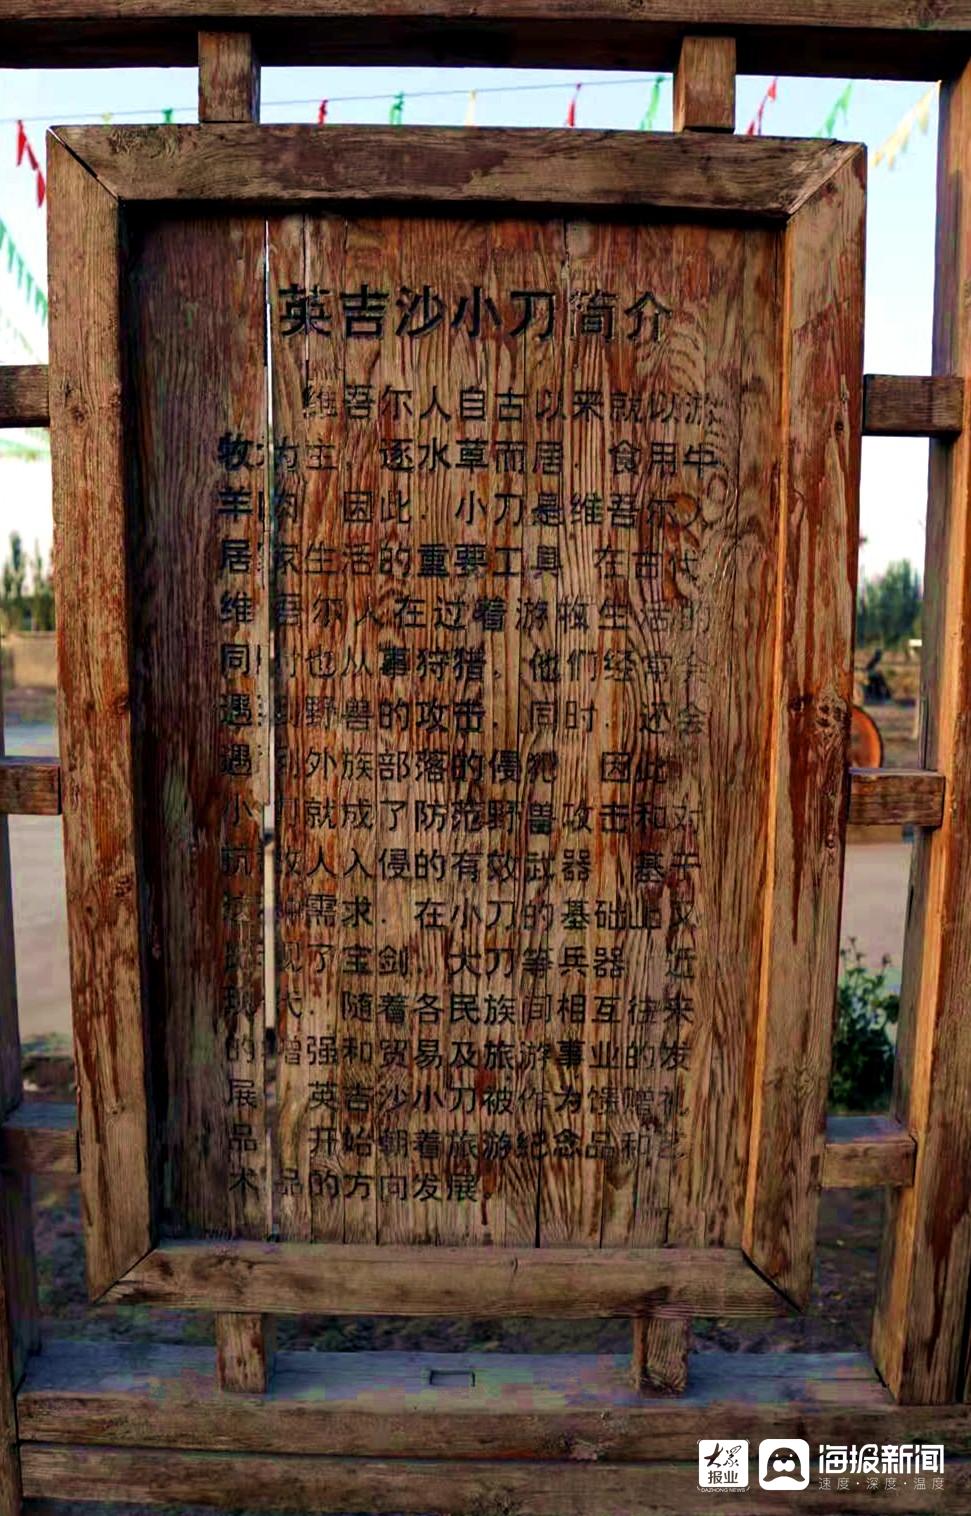 英吉沙小刀简介
维吾尔人自古以来就以游
牧为主，逐水草而居，食用牛
羊肉，因此，小刀是维吾尔人
居家生活的重要工具，在古代，
维吾尔人在过着游牧生活的
同时也从事狩猎，他们经常会
遇到野兽的攻击，同时，还会
遇到外族部落的侵犯，因此，
小刀就成了防范野兽攻击和对
抗敌人入侵的有效武器，基于
这种需求，在小刀的基础上又
出现了宝剑、大刀等兵器，近
现代，随着各民族间相互往来
的增强和贸易及旅游事业的发
展，英吉沙小刀被作为馈赠礼
品，开始朝着旅游纪念品和艺
术品的方向发展。
大众
报业
DAZHONG NEWS
海报新闻
速度·深度·温度